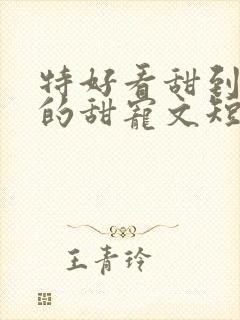 特好看甜到
的甜宠文短
王青玲